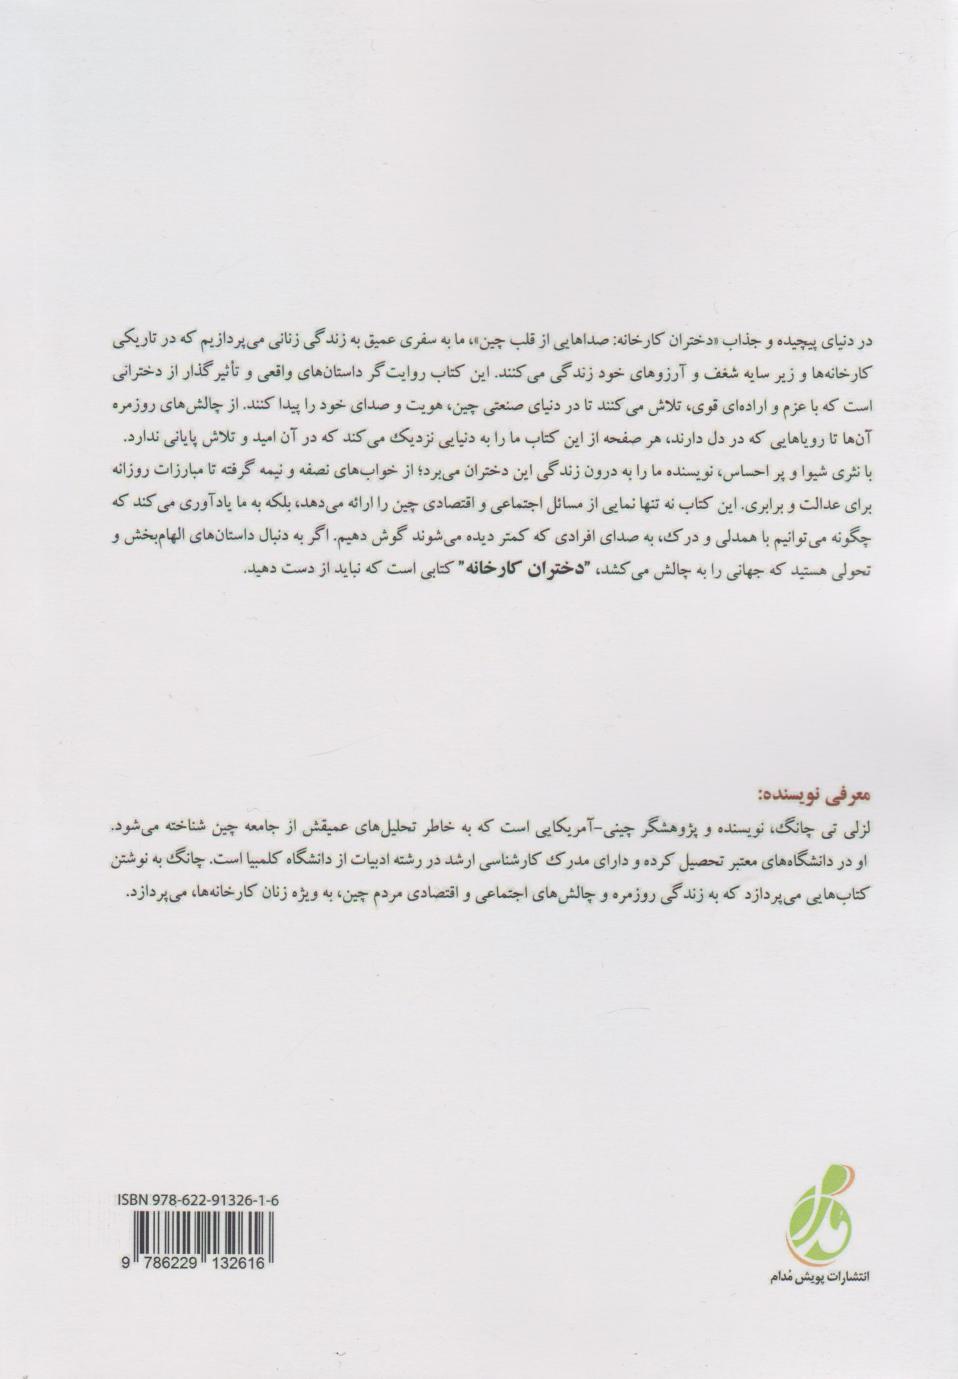 در دنیای پیچیده و جذاب «دختران کارخانه: صداهایی از قلب چین»، ما به سفری عمیق به زندگی زنانی می‌پردازیم که در تاریکی
کارخانه‌ها و زیر سایه شغف و آرزوهای خود زندگی می‌کنند. این کتاب روایت‌گر داستان‌های واقعی و تأثیرگذار از دخترانی
است که با عزم و اراده‌ای قوی، تلاش می‌کنند تا در دنیای صنعتی چین، هویت و صدای خود را پیدا کنند. از چالش‌های روزمره
آن‌ها تا رویاهایی که در دل دارند، هر صفحه از این کتاب ما را به دنیایی نزدیک می‌کند که در آن امید و تلاش پایانی ندارد.
با نثری شیوا و پر احساس، نویسنده ما را به درون زندگی این دختران می‌برد؛ از خواب‌های نصفه و نیمه گرفته تا مبارزات روزانه
برای عدالت و برابری. این کتاب نه تنها نمایی از مسائل اجتماعی و اقتصادی چین را ارائه می‌دهد، بلکه به ما یادآوری می‌کند که
چگونه می‌توانیم با همدلی و درک، به صدای افرادی که کمتر دیده می‌شوند گوش دهیم. اگر به دنبال داستان‌های الهام‌بخش و
تحولی هستید که جهانی را به چالش می‌کشد، "دختران کارخانه" کتابی است که نباید از دست دهید.
معرفی نویسنده:
لزلی تی چانگ، نویسنده و پژوهشگر چینی-آمریکایی است که به خاطر تحلیل‌های عمیقش از جامعه چین شناخته می‌شود.
او در دانشگاه‌های معتبر تحصیل کرده و دارای مدرک کارشناسی ارشد در رشته ادبیات از دانشگاه کلمبیا است. چانگ به نوشتن
کتاب‌هایی می‌پردازد که به زندگی روزمره و چالش‌های اجتماعی و اقتصادی مردم چین، به ویژه زنان کارخانه‌ها، می‌پردازد.
ISBN 978-622-91326-1-6
9 786229 132616
انتشارات پویش مُدام